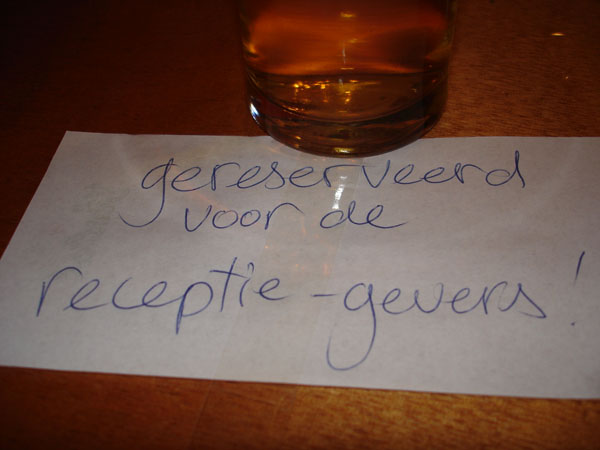 gereserveerd
voor de
receptie-gevers!